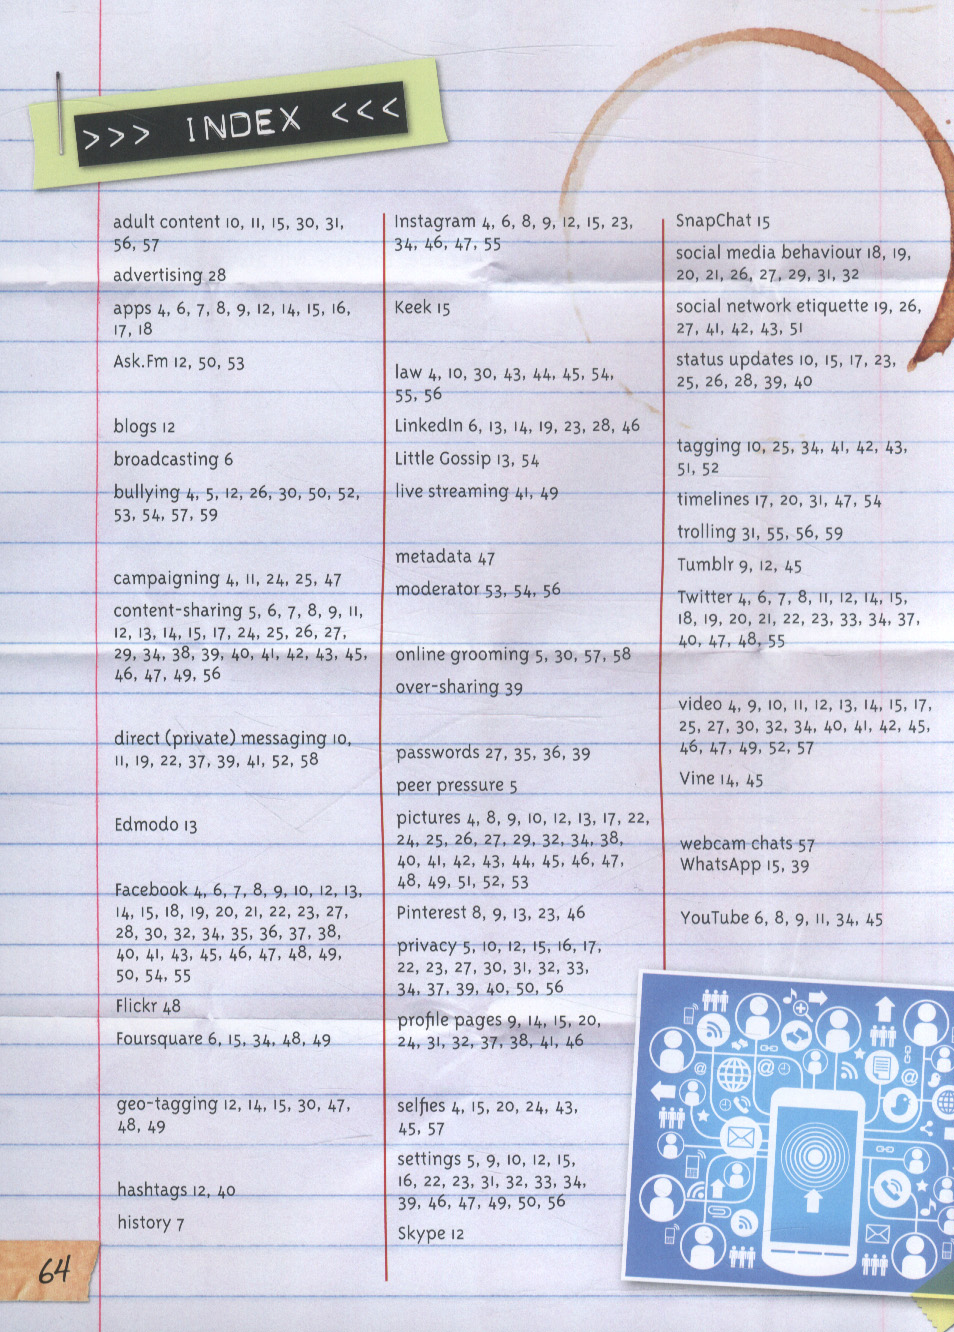 >>> INDEX <<<
adult content 10, 11, 15, 30, 31,
56, 57
advertising 28
apps 4, 6, 7, 8, 9, 12, 14, 15, 16,
17, 18
Ask.Fm 12, 50, 53
blogs 12
broadcasting 6
bullying 4, 5, 12, 26, 30, 50, 52,
53, 54, 57, 59
campaigning 4, 11, 24, 25, 47
content-sharing 5, 6, 7, 8, 9, 11,
12, 13, 14, 15, 17, 24, 25, 26, 27,
29, 34, 38, 39, 40, 41, 42, 43, 45,
46, 47, 49, 56
direct (private) messaging 10,
11, 19, 22, 37, 39, 41, 52, 58
Edmodo 13
Facebook 4, 6, 7, 8, 9, 10, 12, 13,
14, 15, 18, 19, 20, 21, 22, 23, 27,
28, 30, 32, 34, 35, 36, 37, 38,
40, 41, 43, 45, 46, 47, 48, 49,
50, 54, 55
Flickr 48
Foursquare 6, 15, 34, 48, 49
geo-tagging 12, 14, 15, 30, 47,
48, 49
hashtags 12, 40
history 7
Instagram 4, 6, 8, 9, 12, 15, 23,
34, 46, 47, 55
Keek 15
law 4, 10, 30, 43, 44, 45, 54,
55, 56
LinkedIn 6, 13, 14, 19, 23, 28, 46
Little Gossip 13, 54
live streaming 41, 49
metadata 47
moderator 53, 54, 56
online grooming 5, 30, 57, 58
over-sharing 39
passwords 27, 35, 36, 39
peer pressure 5
pictures 4, 8, 9, 10, 12, 13, 17, 22,
24, 25, 26, 27, 29, 32, 34, 38,
40, 41, 42, 43, 44, 45, 46, 47,
48, 49, 51, 52, 53
Pinterest 8, 9, 13, 23, 46
privacy 5, 10, 12, 15, 16, 17,
22, 23, 27, 30, 31, 32, 33,
34, 37, 39, 40, 50, 56
profile pages 9, 14, 15, 20,
24, 31, 32, 37, 38, 41, 46
selfies 4, 15, 20, 24, 43,
45, 57
settings 5, 9, 10, 12, 15,
16, 22, 23, 31, 32, 33, 34,
39, 46, 47, 49, 50, 56
Skype 12
SnapChat 15
social media behaviour 18, 19,
20, 21, 26, 27, 29, 31, 32
social network etiquette 19, 26,
27, 41, 42, 43, 51
status updates 10, 15, 17, 23,
25, 26, 28, 39, 40
tagging 10, 25, 34, 41, 42, 43,
51, 52
timelines 17, 20, 31, 47, 54
trolling 31, 55, 56, 59
Tumblr 9, 12, 45
Twitter 4, 6, 7, 8, 11, 12, 14, 15,
18, 19, 20, 21, 22, 23, 33, 34, 37,
40, 47, 48, 55
video 4, 9, 10, 11, 12, 13, 14, 15, 17,
25, 27, 30, 32, 34, 40, 41, 42, 45,
46, 47, 49, 52, 57
Vine 14, 45
webcam chats 57
WhatsApp 15, 39
YouTube 6, 8, 9, 11, 34, 45
64